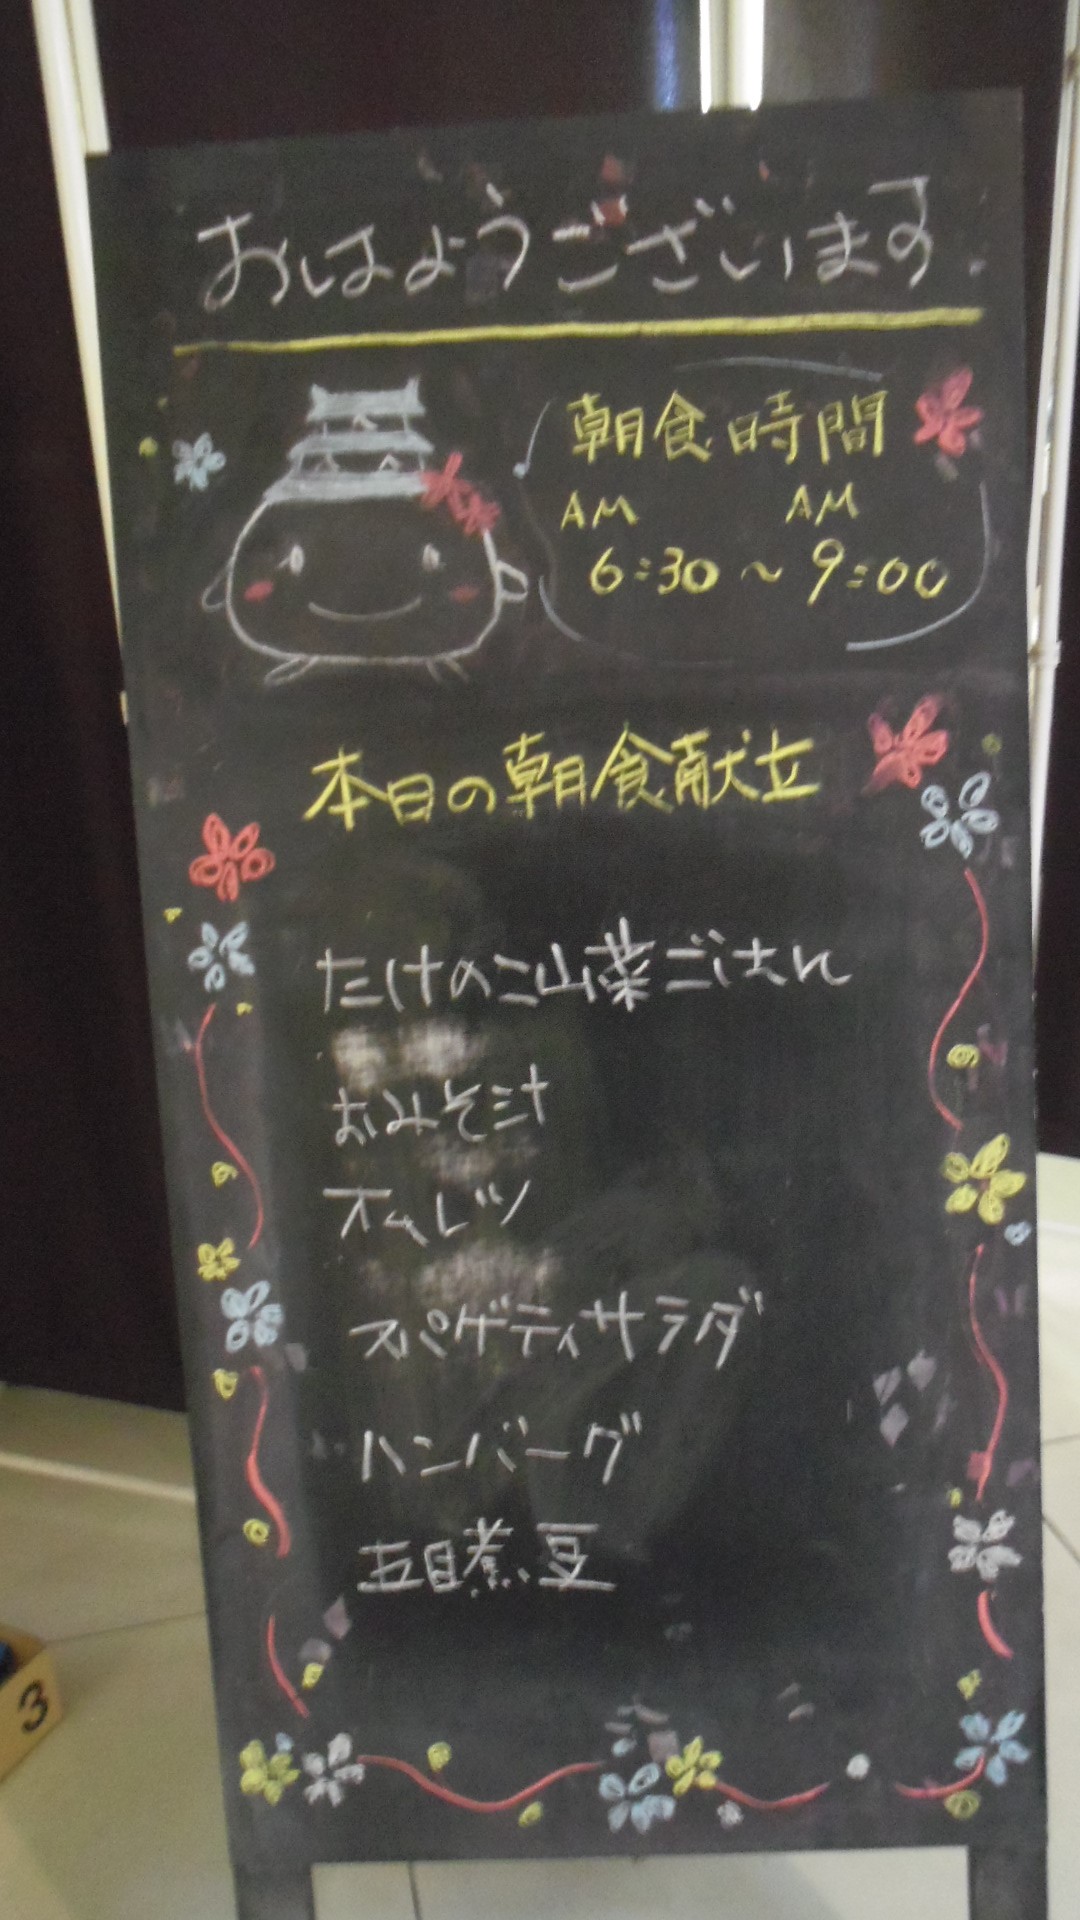 おはようございます
朝食時間
AM AM
6:30～9:00
本日の朝食献立
たけのこ山菜ごはん
おみそ汁
オムレツ
スパゲティサラダ
ハンバーグ
五目煮豆
3